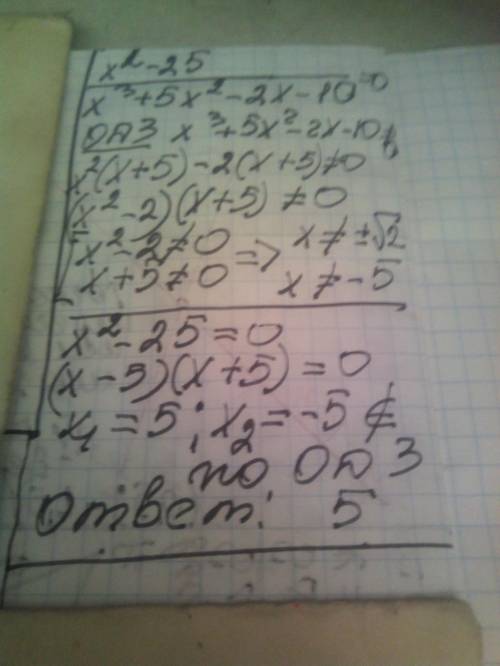 x² - 25
x³ + 5x² - 2x - 10 = 0
ОДЗ x³ + 5x² - 2x - 10 ≠ 0
x²(x + 5) - 2(x + 5) ≠ 0
(x² - 2)(x + 5) ≠ 0
x² - 2 ≠ 0 => x ≠ ±√2
x + 5 ≠ 0 x ≠ -5
x² - 25 = 0
(x - 5)(x + 5) = 0
x₁ = 5; x₂ = -5 ∉
по ОДЗ
Ответ: 5